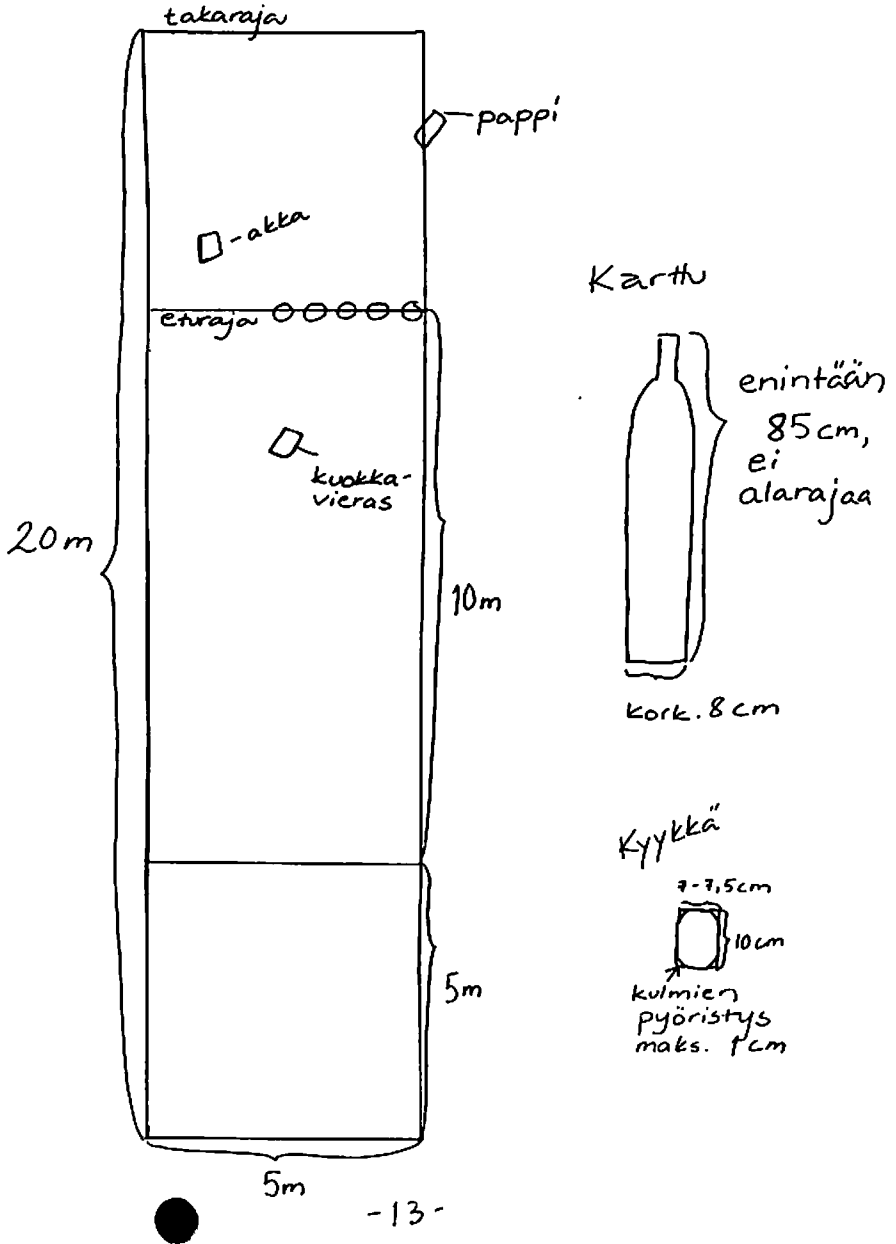 takaraja
pappi
akka
eturaja
kuokka-
vieras
20m
10m
5m
5m
Karttu
enintään
85cm,
ei
alarajaa
kork. 8cm
Kyykkä
7-7,5cm
10cm
kulmien
pyöristys
maks. 1cm
-13-